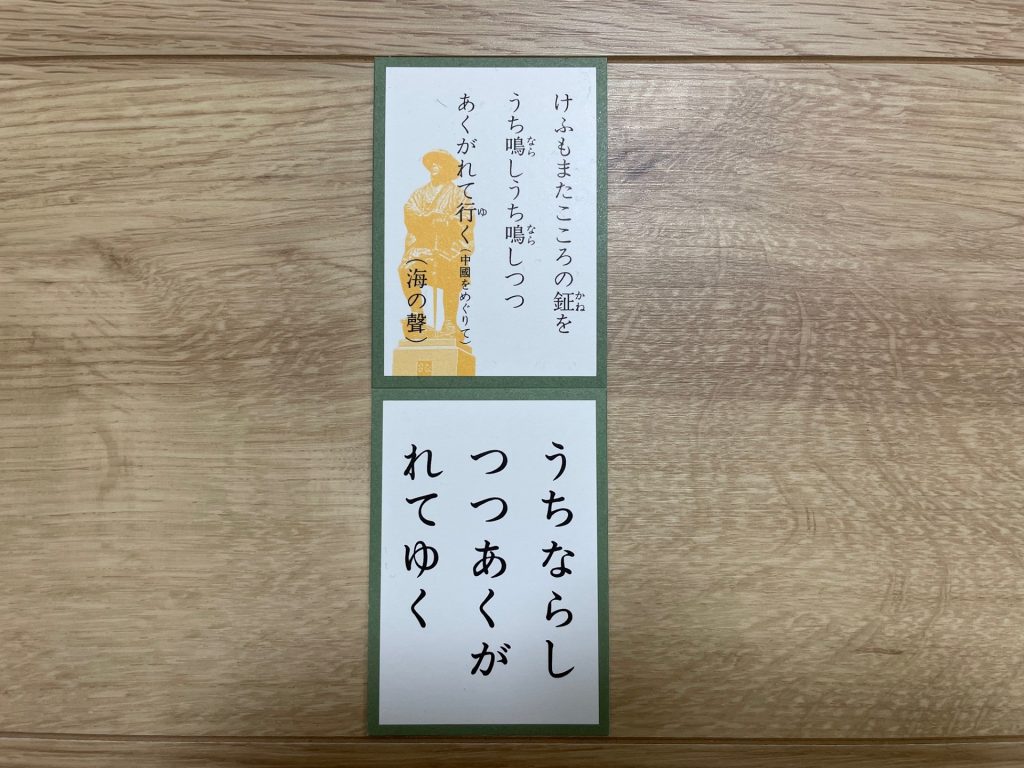 けふもまたこころの鉦を
かね
うち鳴しうち鳴しつつ
なら
なら
あくがれて行く(中國をめぐりて)
ゆ
(海の聲)
うちならし
つつあくが
れてゆく